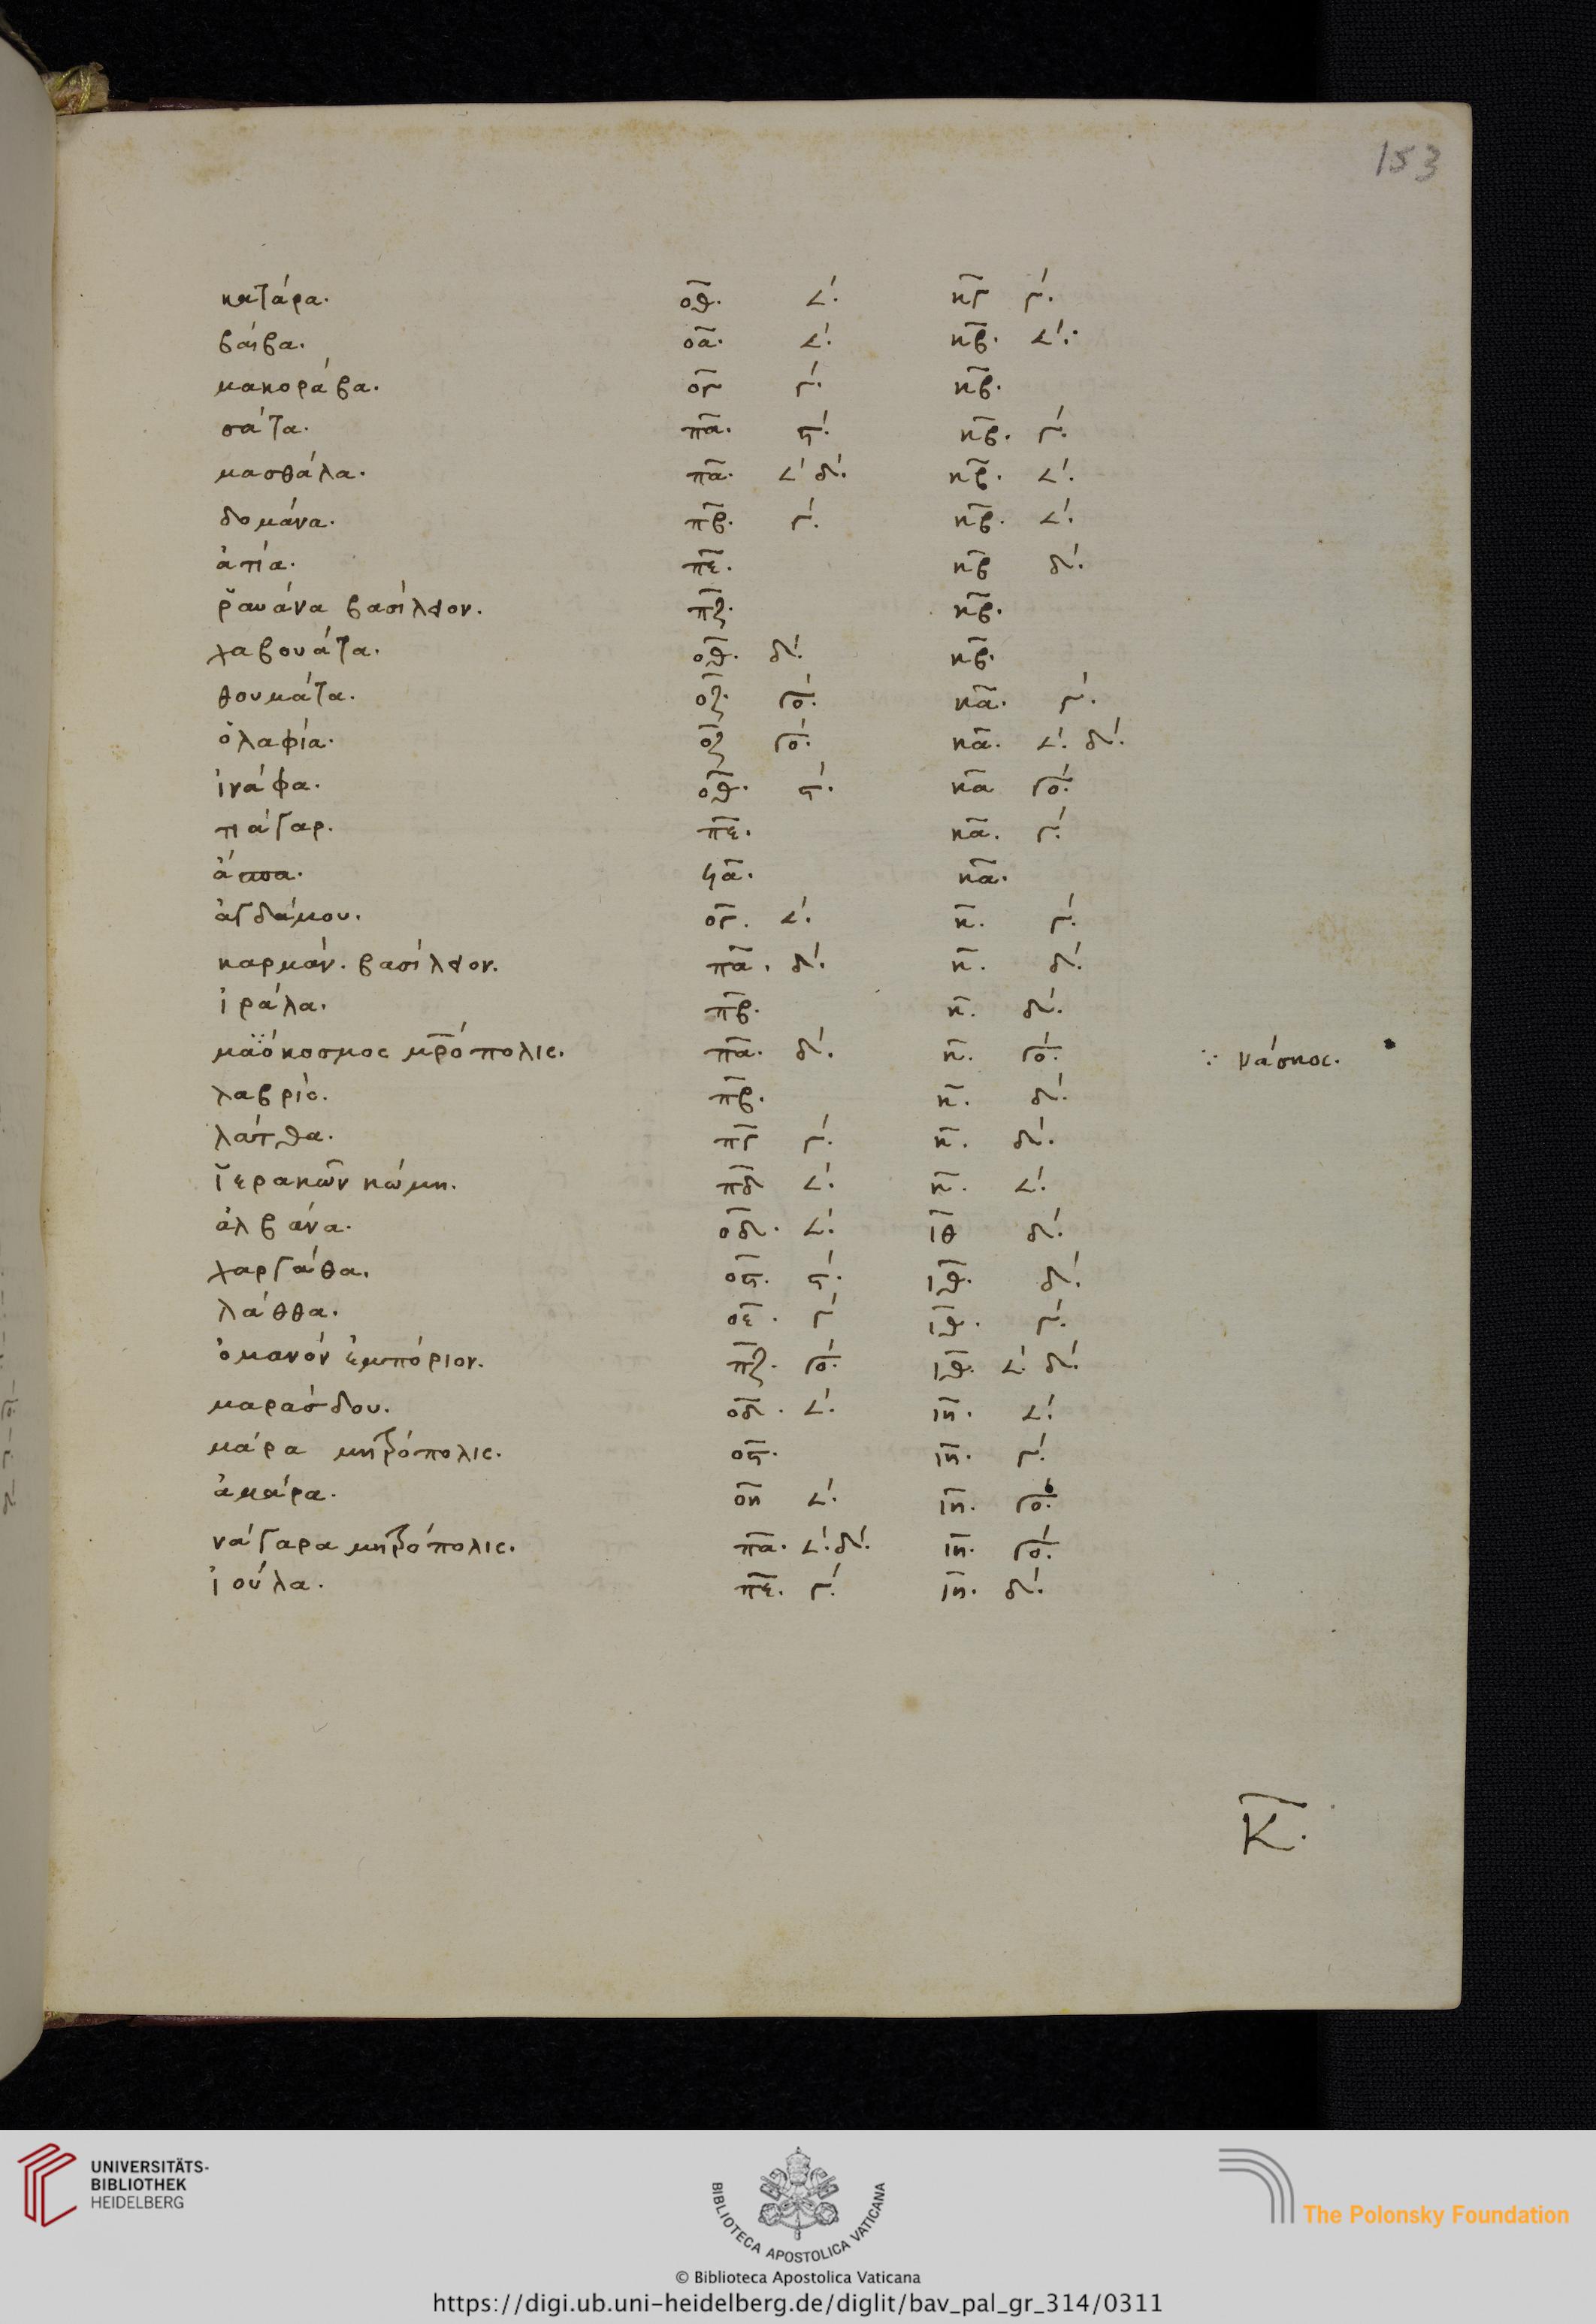 153
κατάρα. οθ. 𐅵. κγ γ.
βάιβα. οα. 𐅵. κβ. 𐅵.
μακοράβα. ογ γ. κβ.
σάτα. πα. ϛ. κβ. γ.
μασθάλα. πα. 𐅵 δ. κβ. 𐅵.
δομάνα. πβ. γ. κβ. 𐅵.
ἀτία. πε. κβ δ.
ῥαυάνα βασίλειον. πζ. κβ.
χαβουάτα. οθ. δ. κβ.
θουμάτα. οζ. γο. κα. γ.
ὀλαφία. οζ γο. κα. 𐅵. δ.
ἰνάφα. οθ. ϛ. κα γο.
πάγαρ. πε. κα. γ.
ϟα. κα.
ἀγδάμου. ογ. 𐅵. κ. γ.
καρμάν. βασίλειον. πα. δ. κ. δ.
ἰράλα. πβ. κ. δ.
μαόκοσμος μρόπολις. πα. δ. κ. γο. ∵ νάσκος.
λαβρίς. πβ. κ. δ.
λάτθα. πγ γ. κ. δ.
ἱερακῶν κώμη. πδ 𐅵. κ. 𐅵.
ἀλβάνα. οδ. 𐅵. ιθ δ.
χαργάθα. οϛ. ϛ. ιθ. δ.
λάθθα. οε. γ ιθ. γ.
ὀμανόν ἐμπόριον. πζ. γο. ιθ. 𐅵. δ.
μαράσδου. οδ. 𐅵. ιη. 𐅵.
μάρα μητρόπολις. οϛ. ιη. γ.
ἀμάρα. οη 𐅵. ιη. γο.
νάγαρα μητρόπολις. πα. 𐅵. δ. ιη. γο.
ἰούλα. πε. γ. ιη. δ.
Κ.
UNIVERSITÄTS-
BIBLIOTHEK
HEIDELBERG
BIBLIOTECA APOSTOLICA VATICANA
The Polonsky Foundation
© Biblioteca Apostolica Vaticana
https://digi.ub.uni-heidelberg.de/diglit/bav_pal_gr_314/0311